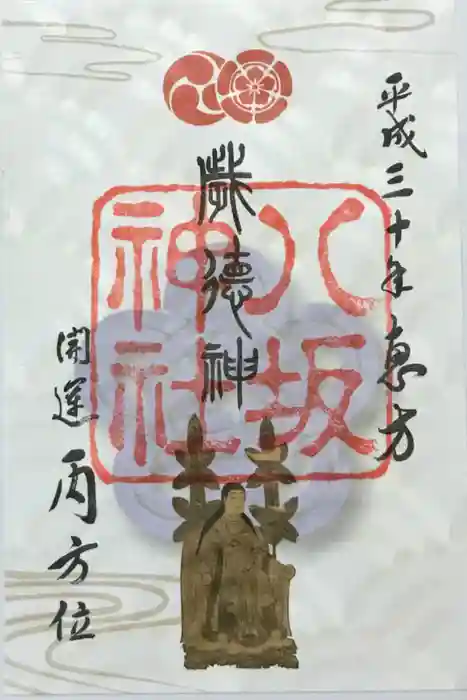 平成三十年 恵方
歳徳神
八坂
神社
開運 丙方位